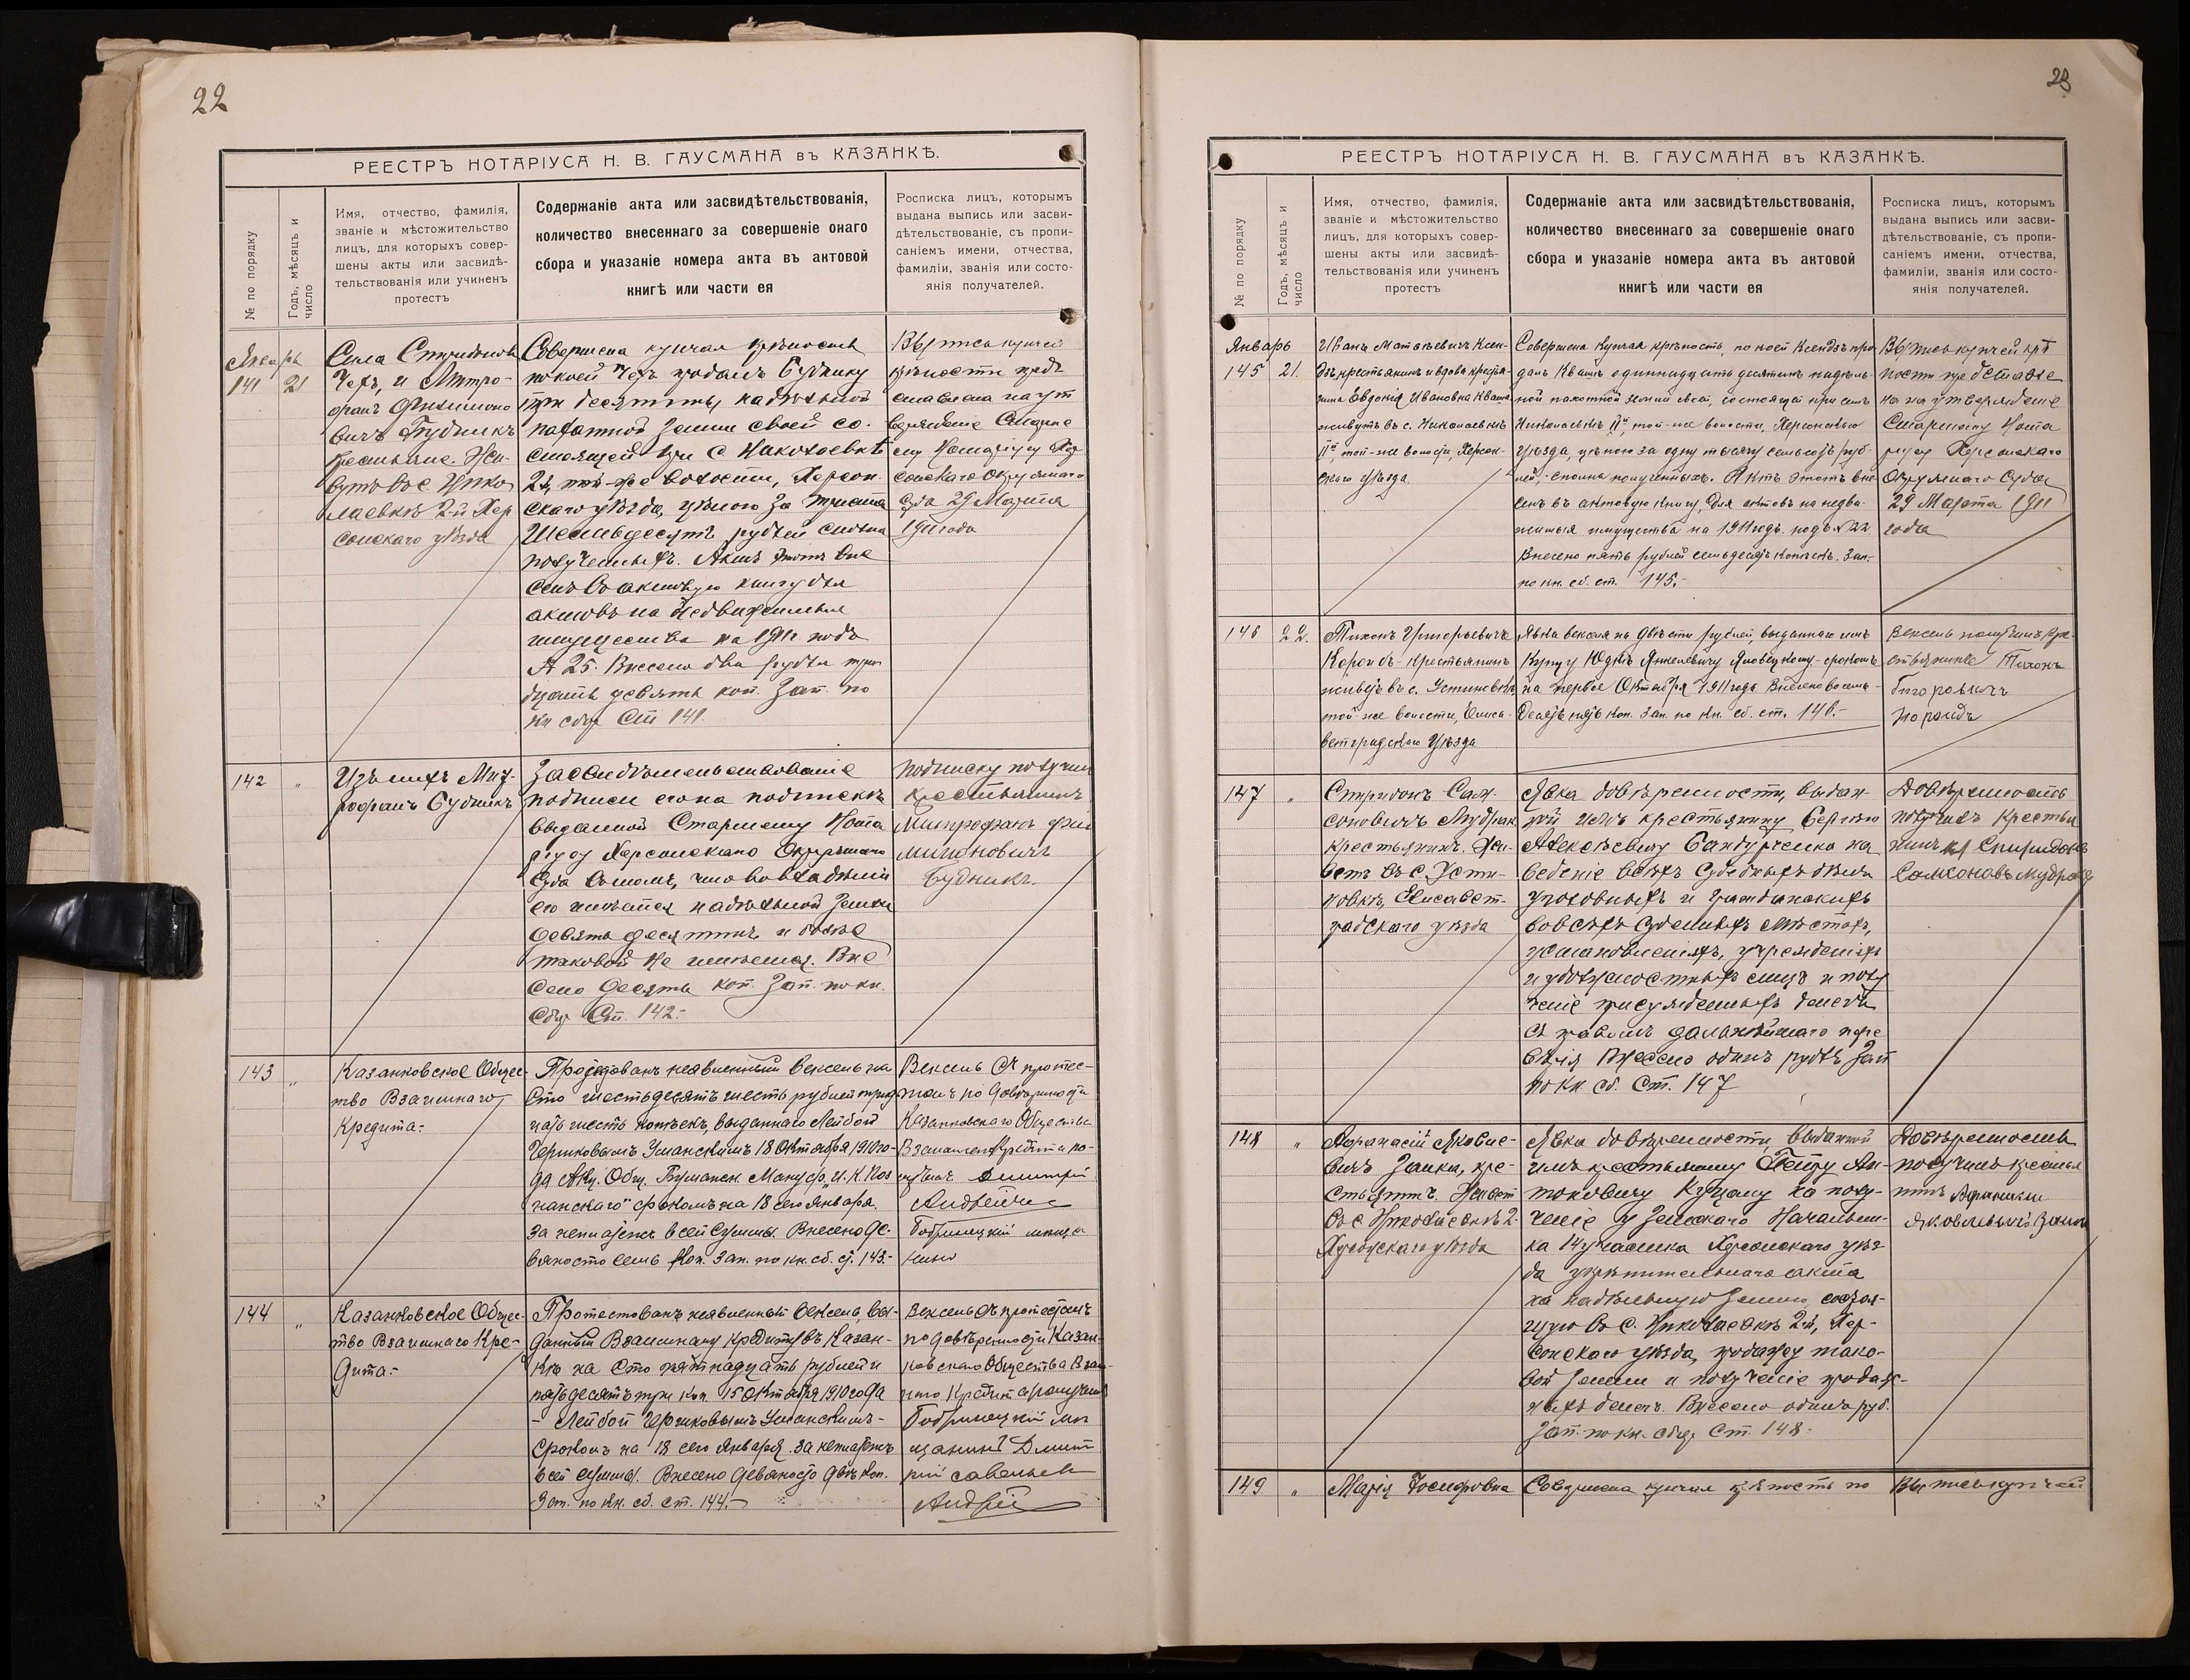 22
РЕЕСТРЪ НОТАРІУСА Н. В. ГАУСМАНА въ КАЗАНКѢ.
№ по порядку
Годъ, мѣсяцъ и
число
Имя, отчество, фамилія,
званіе и мѣстожительство
лицъ, для которыхъ совер-
шены акты или засвидѣ-
тельствованія или учиненъ
протестъ
Содержаніе акта или засвидѣтельствованія,
количество внесеннаго за совершеніе онаго
сбора и указаніе номера акта въ актовой
книгѣ или части ея
Росписка лицъ, которымъ
выдана выпись или засви-
дѣтельствованіе, съ пропи-
саніемъ имени, отчества,
фамиліи, званія или состо-
янія получателей.
Январь
141 21
Чехъ, и Митро-
фанъ
вичъ Будникъ
крестьяне. Жи-
вутъ въ с. Нико
лаевкѣ 2-й Хер
сонскаго уѣзда
Совершена купчая крѣпость
по коей Чехъ продалъ Буднику
три десятины надѣльной
пахатной земли своей со-
стоящей при с. Николаевкѣ
2й, той-же волости, Херсон
скаго уѣзда, цѣною за триста
шестьдесятъ рублей сполна
полученныхъ. Актъ этотъ вне
сенъ въ актовую книгу для
актовъ на недвижимыя
имущества на 1911г. подъ
№ 25. Внесено два рубля три
дцать девять коп. Зап. по
кн сбор Ст 141.
Выпись купчей
крѣпости пред
ставлена на ут
вержденіе Старше
му Нотаріусу Хер
сонскаго Окружнаго
Суда 29 Марта
1911 года
142 "
Изъ нихъ Мит-
рофанъ Будникъ
Засвидѣтельствованіе
подписи его на подпискѣ
выданной Старшему Нота
ріусу Херсонскаго Окружнаго
Суда въ томъ, что во владѣніи
его имѣется надѣльной земли
девять десятинъ и болѣе
таковой не имѣется. Вне
сено десять коп. Зап. по кн.
сбор Ст. 142.-
Подписку получил
крестьянинъ
Митрофанъ Фи
лимоновичъ
Будникъ.
143 "
Казанковское Общес-
тво Взаимнаго
Кредита.-
Протестованъ неявленный вексель на
сто шестьдесятъ шесть рублей трид
цать шесть копѣекъ, выданнаго Лейбой
Черниковымъ Уманскимъ 18 Октября 1910 го-
да Акц. Общ. Бумагск. Мануф. "И. К. Поз
нанскаго" срокомъ на 18 сего Января.
За неплатежъ всей суммы. Внесено де-
вяносто семь коп. Зап. по кн. сб. ст. 143.-
Вексель съ протес-
томъ по довѣрености
Казанковскаго Общества
Взаимнаго Кредита по-
лучилъ Димитрій
Бобринецкій мѣща
нинъ
144 "
Казанковское Общес-
тво Взаимнаго Кре-
дита.-
Протестованъ неявленный вексель, вы-
данный Взаимному Кредиту въ Казан-
кѣ на сто пятнадцать рублей и
пятьдесятъ три коп. 15 Октября 1910 года
- Лейбой Черниковымъ Уманскимъ -
срокомъ на 18 сего Января. За неплатежъ
всей суммы. Внесено девяносто двѣ коп.
Зап. по кн. сб. ст. 144.-
Вексель съ протестомъ
по довѣрености Казан-
ковскаго Общества Взаи
наго Кредита получилъ
Бобринецкій мѣ
щанинъ Дмит
рій Савельев
23
РЕЕСТРЪ НОТАРІУСА Н. В. ГАУСМАНА въ КАЗАНКѢ.
№ по порядку
Годъ, мѣсяцъ и
число
Имя, отчество, фамилія,
званіе и мѣстожительство
лицъ, для которыхъ совер-
шены акты или засвидѣ-
тельствованія или учиненъ
протестъ
Содержаніе акта или засвидѣтельствованія,
количество внесеннаго за совершеніе онаго
сбора и указаніе номера акта въ актовой
книгѣ или части ея
Росписка лицъ, которымъ
выдана выпись или засви-
дѣтельствованіе, съ пропи-
саніемъ имени, отчества,
фамиліи, званія или состо-
янія получателей.
Январь
145 21.
Иванъ Матвѣевичъ Ксен-
дзъ, крестьянинъ и вдова крестья-
нина Евдокія Ивановна Кваша
живутъ въ с. Николаевкѣ
IIй, той-же волости, Херсон-
скаго уѣзда
Совершена купчая крѣпость, по коей Ксендзъ про
далъ Квашѣ одиннадцать десятинъ надѣль-
ной пахотной земли своей, состоящей при селѣ
Николаевкѣ IIй, той-же волости, Херсонскаго
уѣзда, цѣною за одну тысячу семьсотъ руб-
лей, сполна полученныхъ. Актъ этотъ вне
сенъ въ актовую книгу, для актовъ на недви-
жимыя имущества на 1911 годъ. подъ № 22.
Внесено пять рублей семьдесятъ копѣекъ. Зап.
по кн. сб. ст. 145.-
Выпись купчей крѣ
пости представле
на на утвержденіе
Старшему Нота
ріусу Херсонскаго
Окружнаго Суда
29 Марта 1911
года
146 22.
Тихонъ Григорьевичъ
крестьянинъ
живетъ въ с. Устиновкѣ
той-же волости, Елиса-
ветградскаго уѣзда
Явка векселя на двѣсти рублей, выданнаго имъ
купцу Юдкѣ Янкелевичу Яновецкому - срокомъ
на первое Октября 1911 года Внесено восемь-
десятъ пять коп. Зап. по кн. сб. ст. 146.-
Вексель получилъ кре-
стьянинъ Тихонъ
147 "
Спиридонъ Сам-
соновичъ Мудракъ
крестьянинъ. Жи-
ветъ въ с. Усти-
новкѣ, Елисавет-
градскаго уѣзда
Явка довѣренности, выдан-
ной имъ крестьянину Сергѣю
Алексѣевичу Бандурченко на
веденіе всѣхъ судебныхъ дѣлъ
уголовныхъ и гражданскихъ
во всѣхъ судебныхъ мѣстахъ,
установленіяхъ, учрежденіяхъ
и у должностныхъ лицъ и полу
ченіе присужденныхъ денегъ
съ правомъ дальнѣйшаго пере
вѣрія Внесено одинъ рубль Зап
по кн сб. Ст. 147
Довѣренность
получилъ Крестья
нинъ Спиридонъ
Самсоновъ Мудракъ
148 "
Афанасій Яковле-
вичъ Заика, кре-
стьянинъ. Живетъ
въ с Николаевкѣ 2-
Херсонскаго уѣзда
Явка довѣренности, выданной
имъ крестьянину Петру Ан-
тоновичу Куцану на полу-
ченіе у Земскаго Начальни-
ка 14 участка Херсонскаго уѣз-
да укрѣпительнаго акта
на надѣльную землю, состоя-
щую въ с. Николаевкѣ 2й, Хер-
сонскаго уѣзда, продажу тако-
вой земли и полученіе продаж-
ныхъ денегъ. Внесено одинъ руб.
Зап. по кн. сбор Ст. 148.
Довѣренность
получилъ крестья
нинъ Афанасій
Яковлевичъ Заика
149 "
Марія Іосифовна
Совершена купчая крѣпость по
Выпись купчей